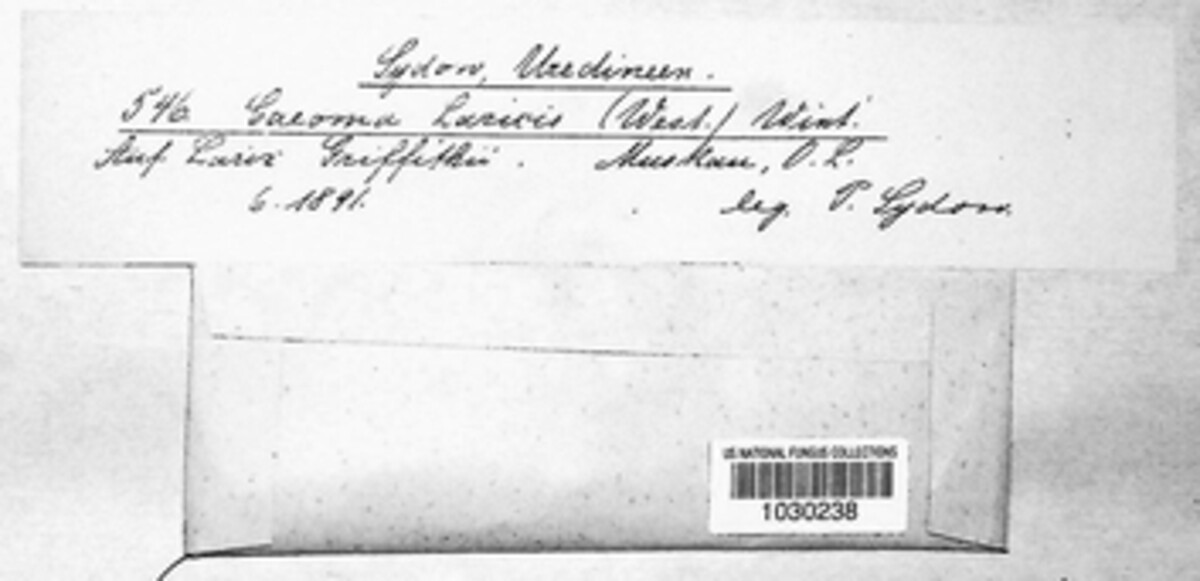 Sydow, Uredineen.
546 Caeoma Laricis (West.) Wint.
Auf Larix Griffithii. Muskau, O. L.
6. 1891. leg. P. Sydow.
US NATIONAL FUNGUS COLLECTIONS
1030238